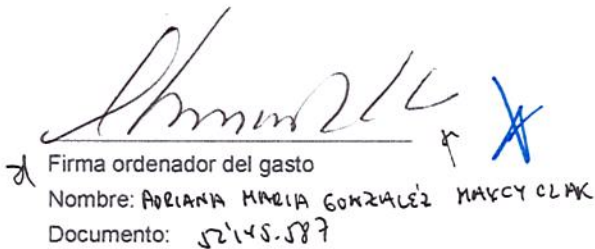 Firma ordenador del gasto
Nombre: ADRIANA MARIA GONZALEZ MAXCY CLAK
Documento: 52'145.587